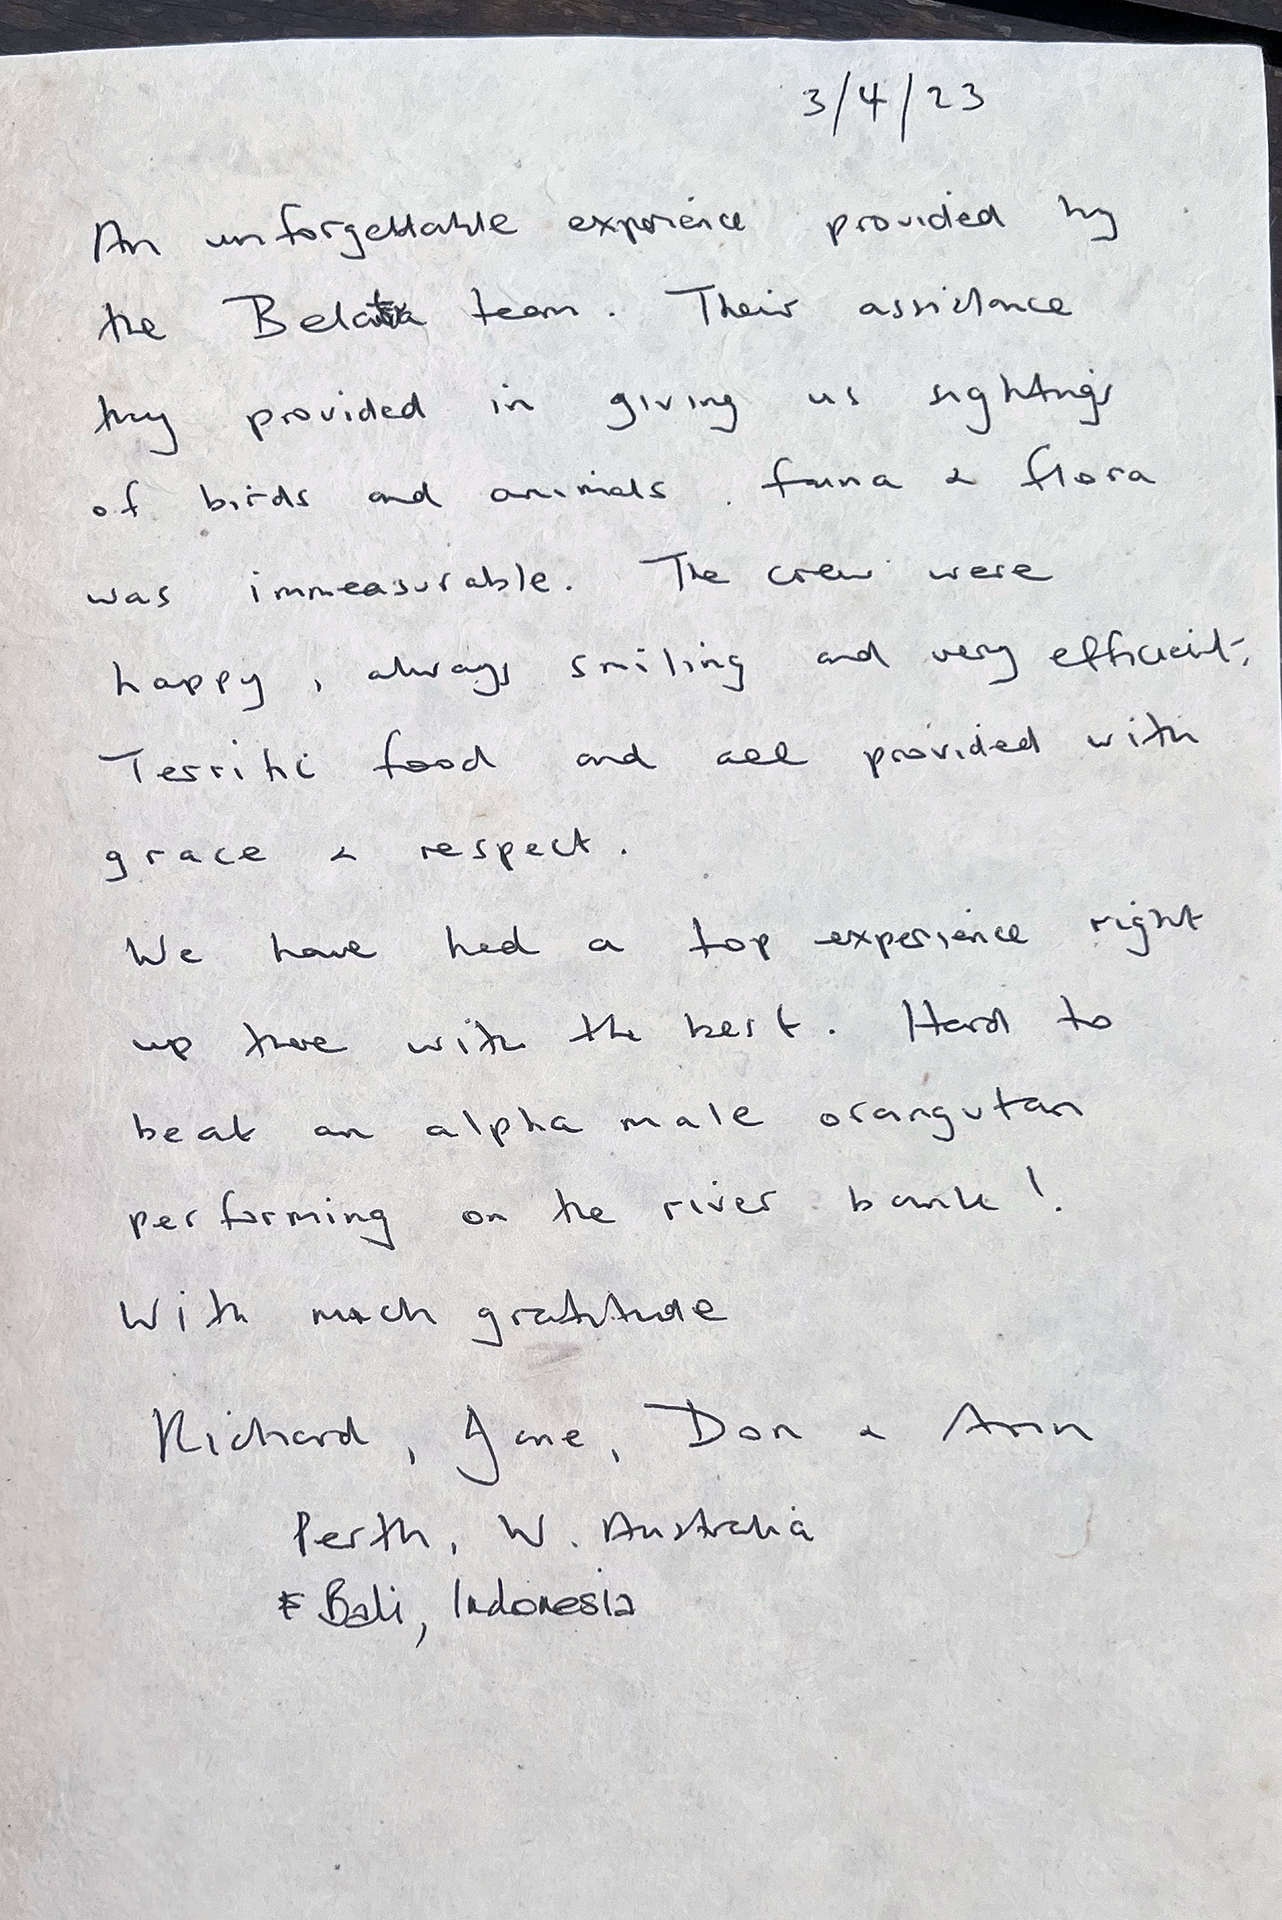 3/4/23
An unforgettable experience provided by
the team. Their assistance
they provided in giving us sightings
of birds and animals, fauna & flora
was immeasurable. The crew were
happy, always smiling and very efficient.
Terrific food and all provided with
grace & respect.
We have had a top experience right
up there with the best. Hard to
beat an alpha male orangutan
performing on the river bank!
With much gratitude
Richard, Jane, Don & Ann
Perth, W. Australia
& Bali, Indonesia